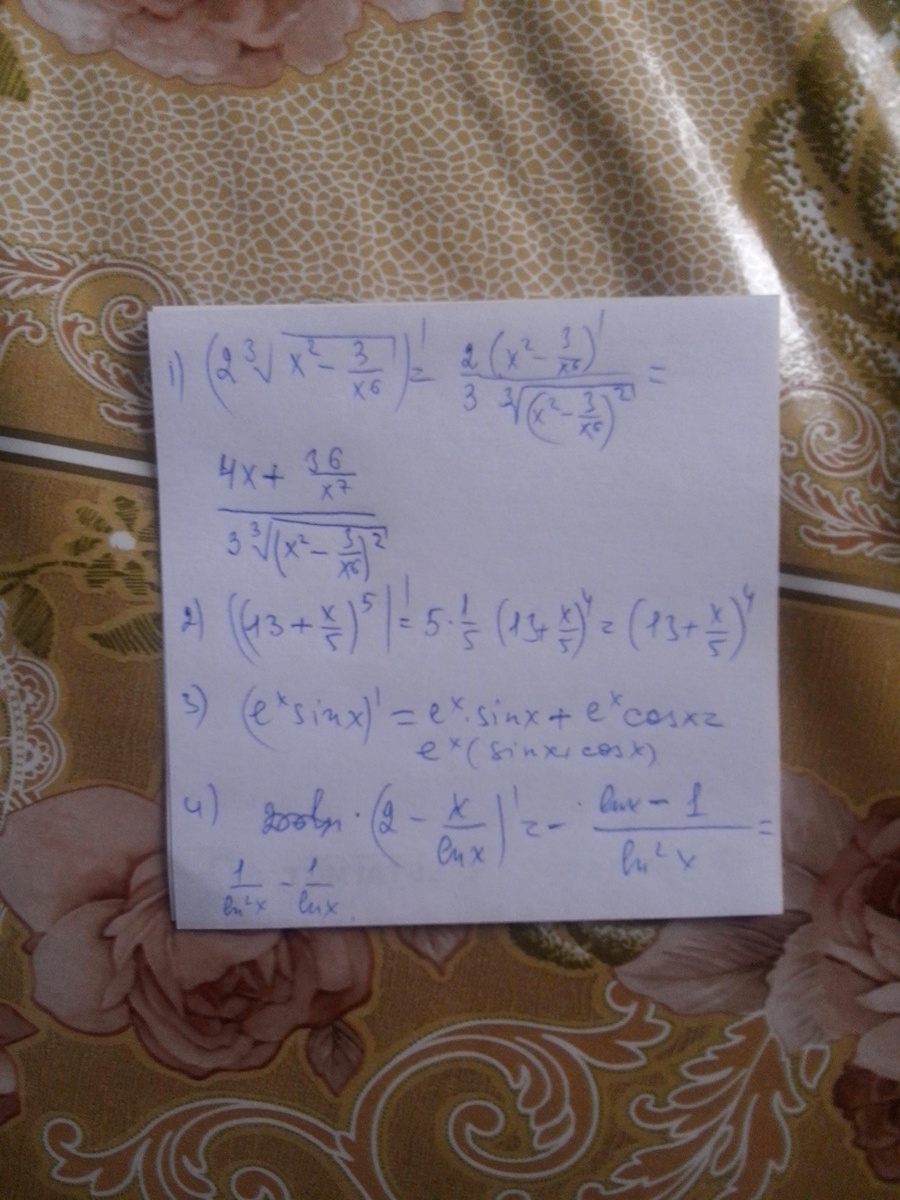 1) (2∛(x² - 3/x⁶))' = 2(x² - 3/x⁶)' / 3 ∛((x² - 3/x⁶)²) =
4x + 36/x⁷ / 3∛((x² - 3/x⁶)²)
2) ((13 + x/5)⁵)' = 5 · 1/5 (13 + x/5)⁴ = (13 + x/5)⁴
3) (eˣ sinx)' = eˣ · sinx + eˣ cosx =
eˣ (sinx + cosx)
4) (2 - x/lnx)' = - lnx - 1 / ln²x =
1/ln²x - 1/lnx